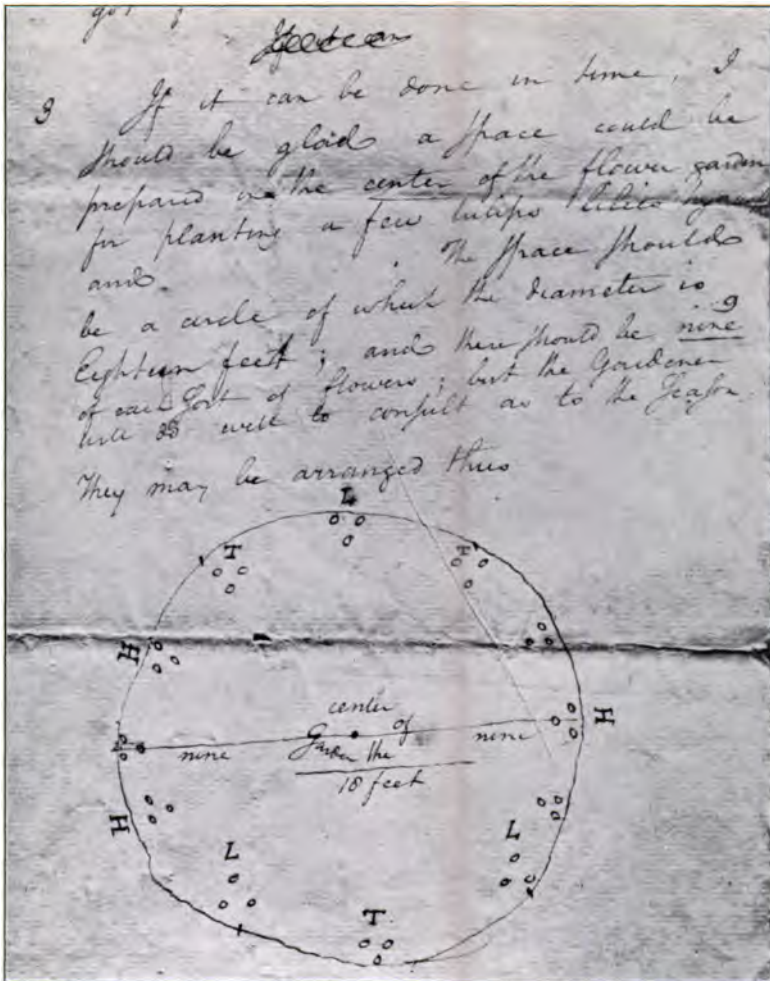 3 If it can be done in time, I
should be glad a space could be
prepared in the center of the flower garden
for planting a few tulips lilies
and The space should
be a circle of which the diameter is
Eighteen feet; and there should be nine 9
of each sort of flowers; but the Gardener
will do well to consult as to the Season
They may be arranged thus
L
T T
H
H
center
of
nine Garden the nine
18 feet
H
L L
T